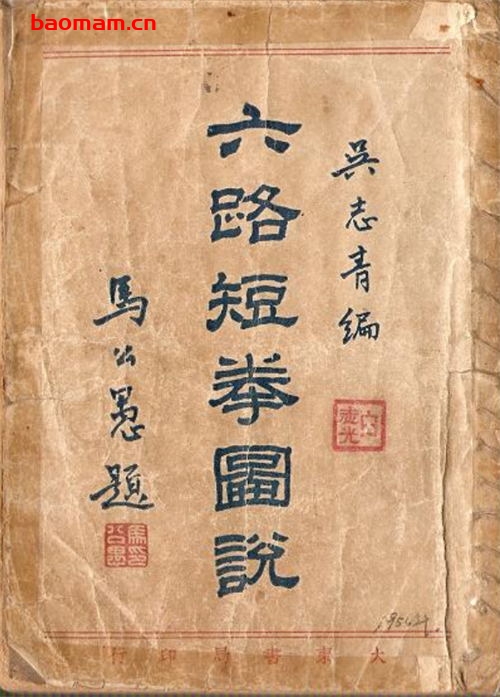 baomam.cn
吳志青編
六路短拳圖說
馬公愚題
馬公愚印
大東書局印行